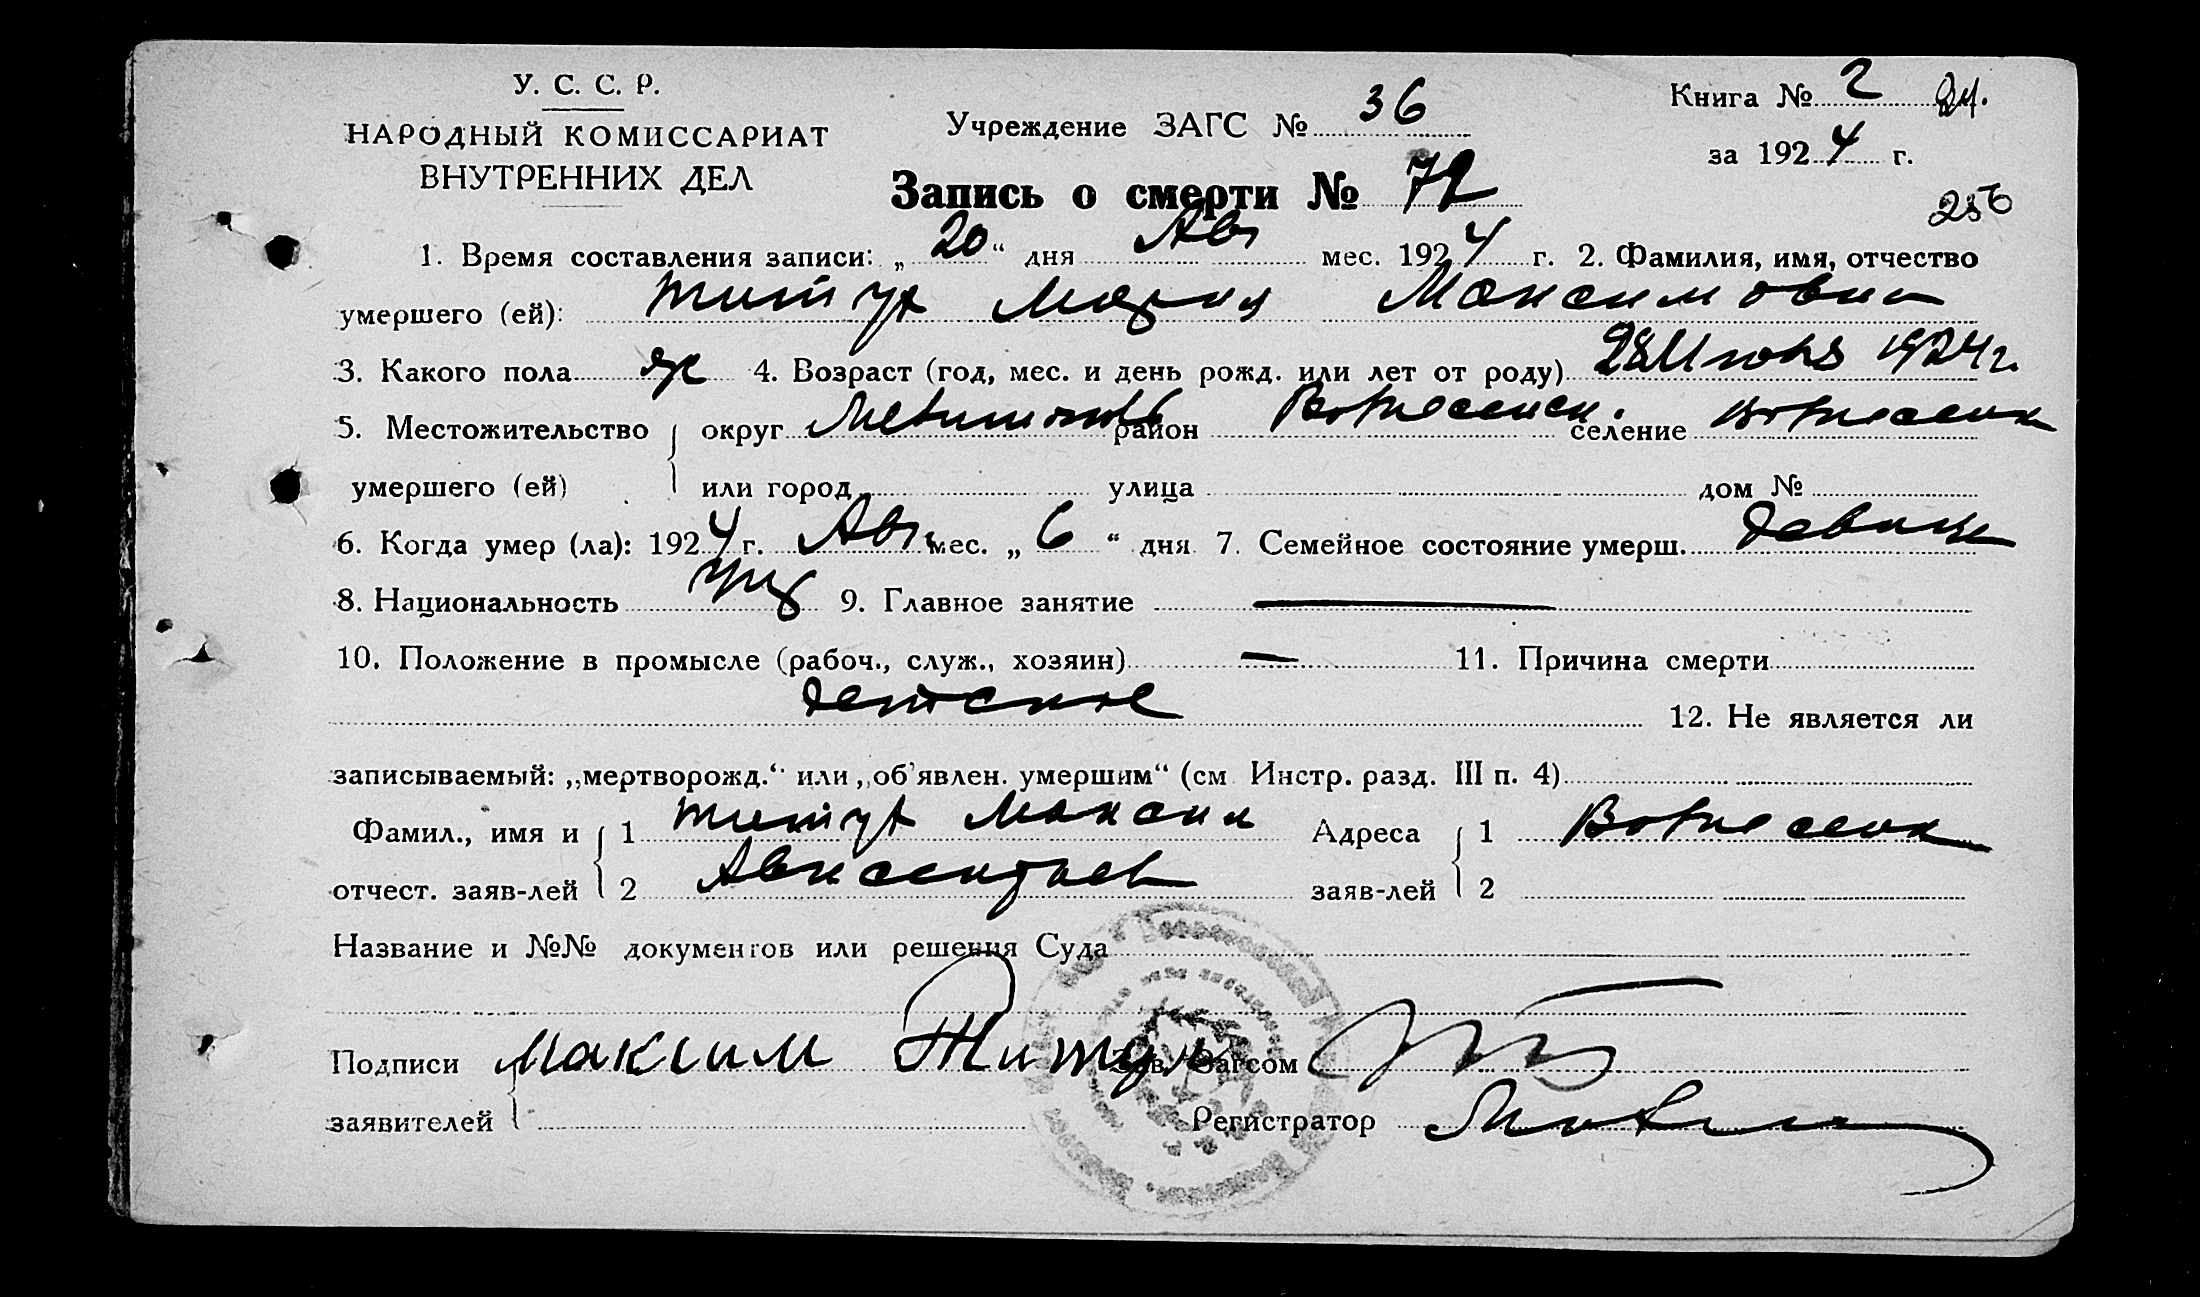 У. С. С. Р.
НАРОДНЫЙ КОМИССАРИАТ
ВНУТРЕННИХ ДЕЛ
Учреждение ЗАГС № 36
Книга № 2 21.
за 1924 г.
Запись о смерти № 72
256
1. Время составления записи: „20“ дня Авг мес. 1924 г. 2. Фамилия, имя, отчество
умершего (ей): Титух Мария Максимовна
3. Какого пола ж 4. Возраст (год, мес. и день рожд. или лет от роду) 28 Июня 1924 г.
5. Местожительство округ район Вознесенск. селение Вознесенка
умершего (ей) или город улица дом №
6. Когда умер (ла): 1924 г. Авг. мес. „6“ дня 7. Семейное состояние умерш. девица
8. Национальность укр 9. Главное занятие —
10. Положение в промысле (рабоч., служ., хозяин) — 11. Причина смерти
детское 12. Не является ли
записываемый: „мертворожд.“ или „об'явлен. умершим“ (см Инстр. разд. III п. 4)
Фамил., имя и 1 Титух Максим Адреса 1 Вознесенка
отчест. заяв-лей 2 заяв-лей 2
Название и №№ документов или решения Суда
Подписи Максим Титух Зав. Загсом
заявителей Регистратор